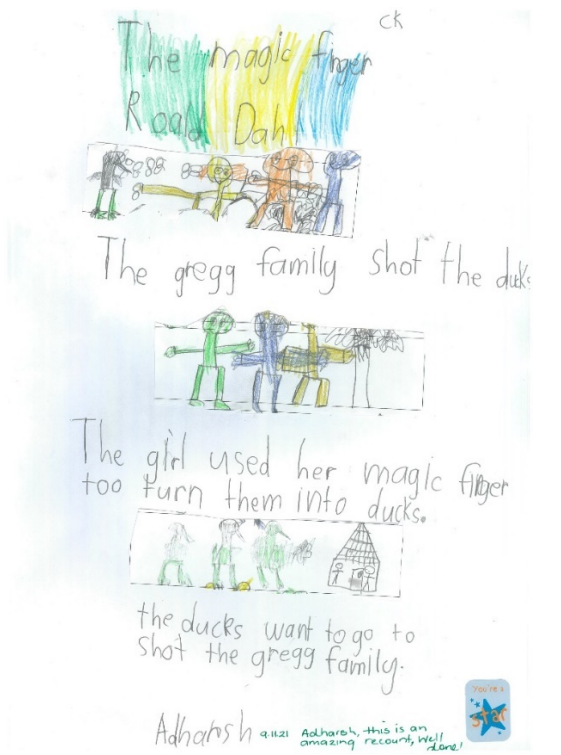 CK
The magic finger
Roald Dahl
The gregg family shot the ducks
The girl used her magic finger
too turn them into ducks.
the ducks want to go to
shot the gregg family.
Adharsh 9.11.21 Adharsh, this is an
amazing recount, Well
done!
You're a
star